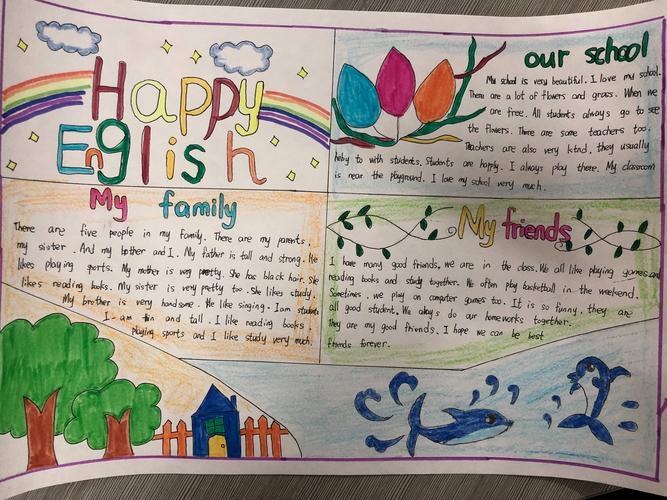 Happy
English
our school
My school is very beautiful. I love my school.
There are a lot of flowers and grass. When we
are free. All students always go to see
the flowers. There are some teachers too
Teachers are also very kind, they usually
help to with students. Students are happly. I always play there. My classroom
is near the playground. I love my school very much.
My family
There are five people in my family. There are my parents,
my sister. And my bother and I. My father is tall and strong. He
likes playing sports. My mother is very pretty. She has black hair. She
likes reading books. My sister is very pretty too. She likes study.
My brother is very handsome. He like singing. I am student
I am thin and tall. I like reading books
playing sports and I like study very much.
My friends
I have many good friends, we are in the class. We all like playing games and
reading books and study together. We often play basketball in the weekend.
Sometimes, we play on computer games too. It is so funny. they are
all good student. We always do our homeworks together.
they are my good friends. I hope we can be best
friends forever.